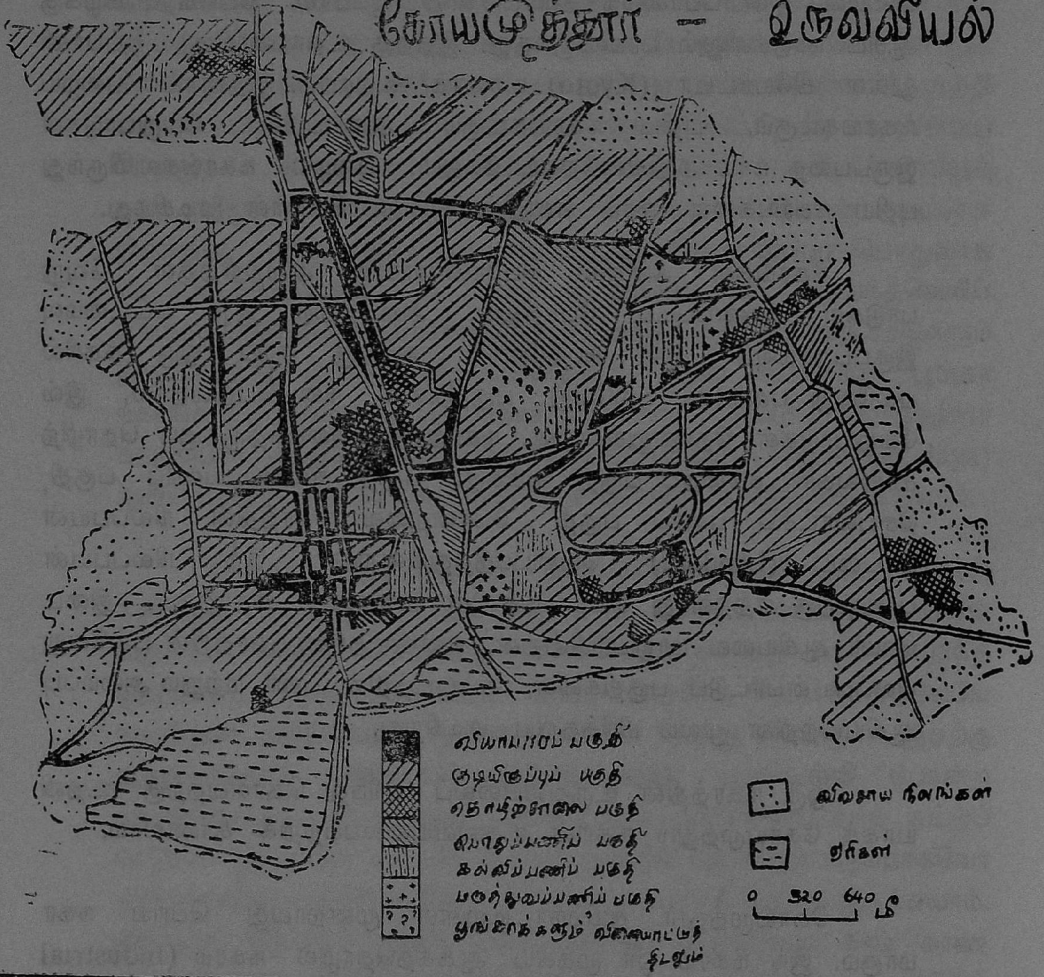 கோயமுத்தூர் - உருவவியல்
வியாபாரப் பகுதி
குடியிருப்புப் பகுதி
தொழிற்சாலை பகுதி
பொதுப்பணிப் பகுதி
கல்விப்பணிப் பகுதி
மருத்துவப்பணிப் பகுதி
பூங்காக்களும் விளையாட்டுத்
திடலும்
விவசாய நிலங்கள்
ஏரிகள்
0 320 640 மீ
(Industrial